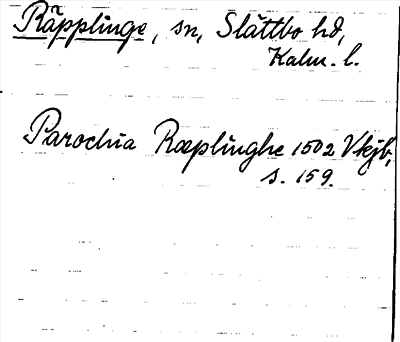 Räpplinge, sn, Slättbo hd,
Kalm. l.
Parochia Ræplinghe 1502 Vkjb,
s. 159.